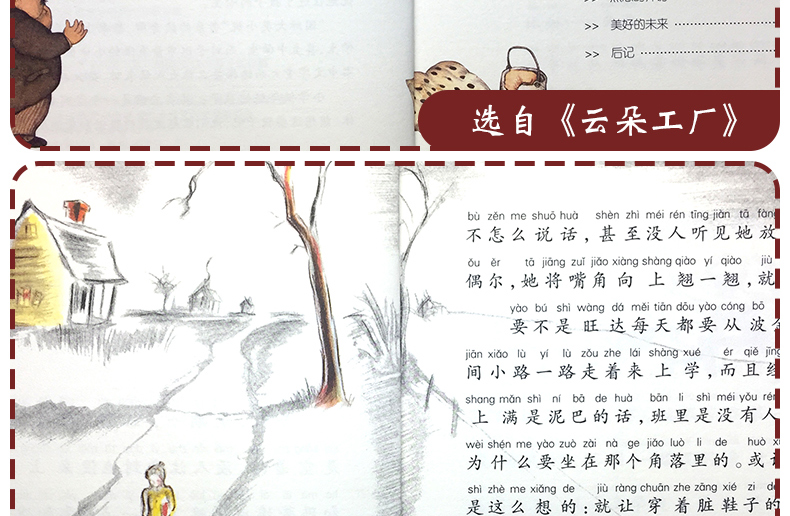 >> 美好的未来
>> 后记
选自《云朵工厂》
bù zěn me shuō huà shèn zhì méi rén tīng jiàn tā fàng
不怎么说话，甚至没人听见她放
ǒu ěr tā jiāng zuǐ jiǎo xiàng shàng qiào yí qiào jiù
偶尔，她将嘴角向上翘一翘，就
yào bú shì wàng dá měi tiān dōu yào cóng bō
要不是旺达每天都要从波
jiān xiǎo lù yí lù zǒu zhe lái shàng xué ér qiě
间小路一路走着来上学，而且
shang mǎn shì ní bā de huà bān li shì méi yǒu rén
上满是泥巴的话，班里是没有人
wèi shén me yào zuò zài nà ge jiǎo luò li de huò
为什么要坐在那个角落里的。或
shì zhè me xiǎng de jiù ràng chuān zhe zāng xié zi de
是这么想的：就让穿着脏鞋子的